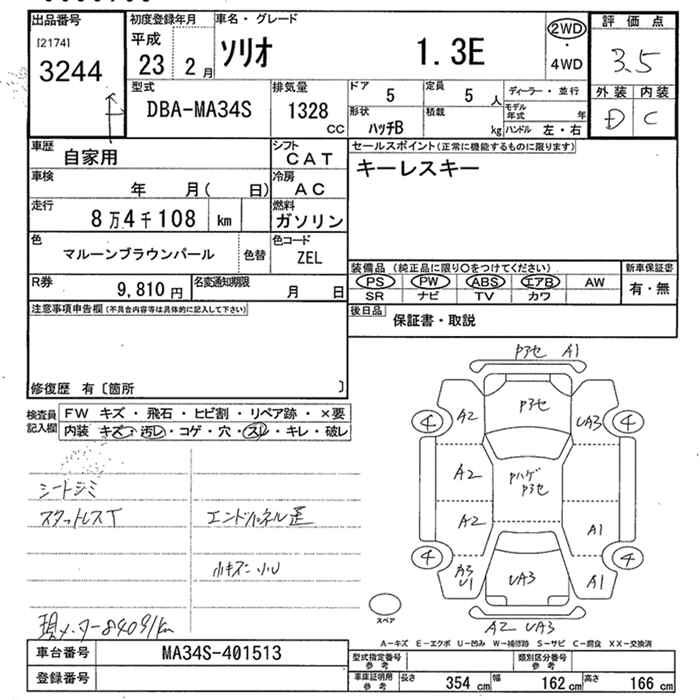 出品番号
[2174]
3244
初度登録年月
平成
23 2月
車名・グレード
ソリオ 1.3E
2WD
・
4WD
評価点
3.5
外装 内装
D C
型式
DBA-MA34S
排気量
1328
CC
ドア
5
定員
5 人
ディーラー・並行
形状
ハッチB
積載
kg
モデル年式 年
ハンドル 左・右
車歴
自家用
シフト
CAT
車検
年 月( 日)
冷房
AC
走行
8万4千108 km
燃料
ガソリン
色
マルーンブラウンパール
色替
色コード
ZEL
R券
9,810円
名変通知期限
月 日
セールスポイント(正常に機能するものに限ります)
キーレスキー
装備品(純正品に限り○をつけてください)
新車保証書
PS PW ABS エアB AW
有・無
SR ナビ TV カワ
後日品
保証書・取説
注意事項申告欄(不具合内容等は具体的に記入して下さい)
修復歴 有〔箇所 〕
検査員
記入欄
FW キズ・飛石・ヒビ割・リペア跡・×要
内装 キズ・汚レ・コゲ・穴・スレ・キレ・破レ
シートシミ
スタットレスT
エンドパネル歪
小キズ 小U
現メーター84091km
Pアセ A1
A2
Pアセ
UA3
4
4
A2
Pハゲ
Pアセ
A2
A1
4
4
A3
U1
UA3
A1
スペア
A2 UA3
A-キズ E-エクボ U-凹み W-補修跡 S-サビ C-腐食 XX-交換済
車台番号
MA34S-401513
登録番号
型式指定番号
参考
類別区分番号
参考
車庫証明用
参考
長さ 354 cm
幅 162 cm
高さ 166 cm